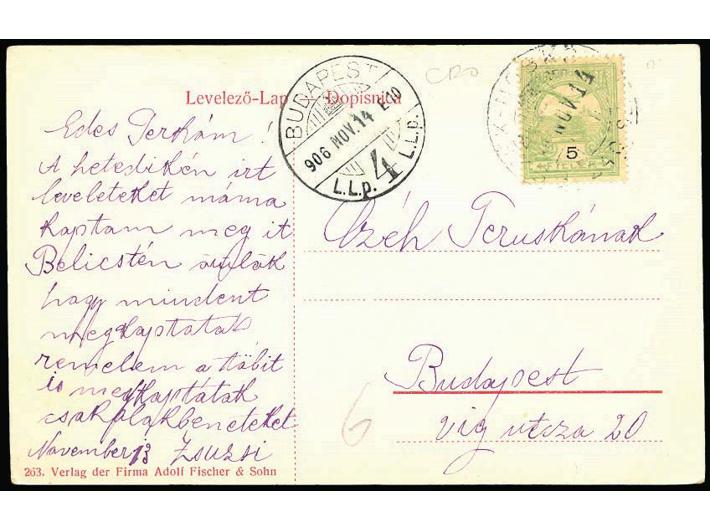 Levelező-Lap Dopisnica
BUDAPEST
906 NOV.14 E10
4
L.L.p. L.L.p.
CRO
5
Edes Terkám!
A hetedikén irt
leveleteket máma
kaptam meg it
Belicstén örülök
hogy mindent
megkaptatak
remelem a többit
is megkaptátak
November 13 Zsuzsi
Czéh Teruskának
Budapest
vig utcza 20
6
263. Verlag der Firma Adolf Fischer & Sohn